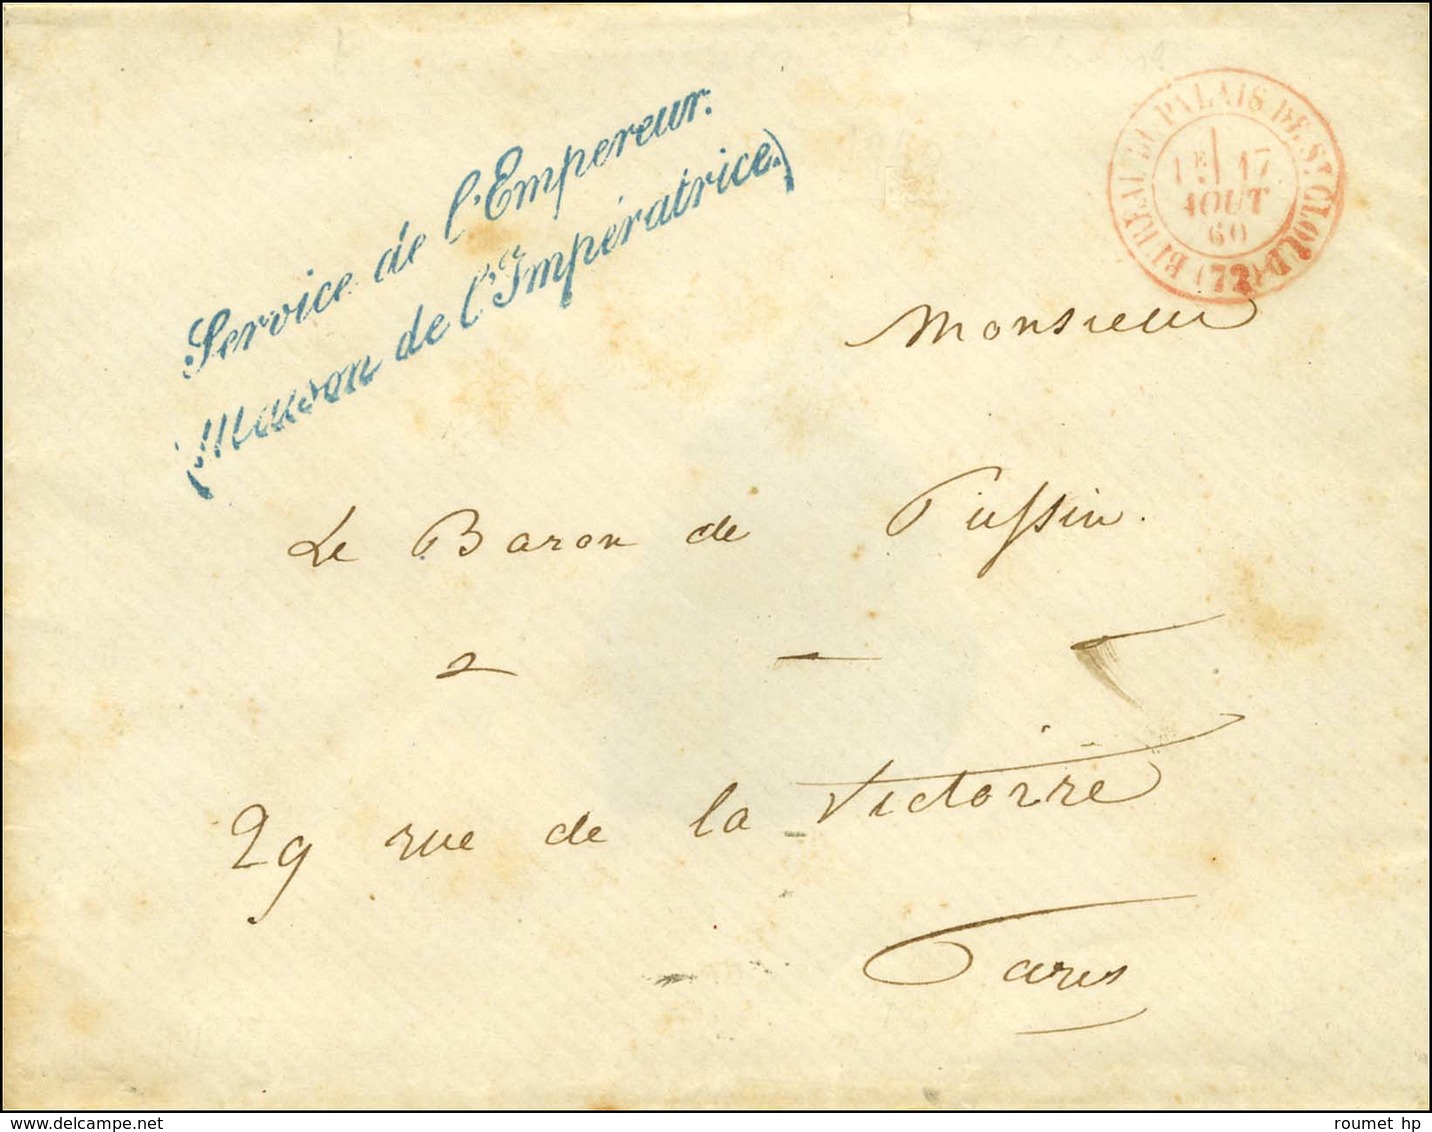 Service de l'Empereur.
(Maison de l'Impératrice.)
BUREAU DU PALAIS DE St CLOUD (72)
1E 17
AOUT
60
Monsieur
Le Baron de Pussin.
29 rue de la Victoire
Paris
roumet hp